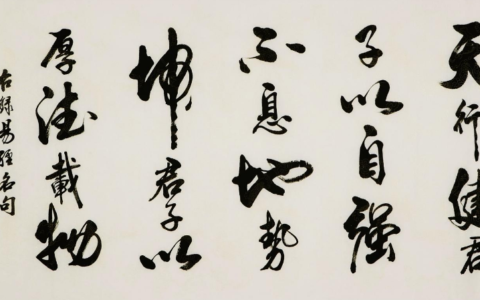 天行健君
子以自强
不息地势
坤君子以
厚德載物
右録易經名句